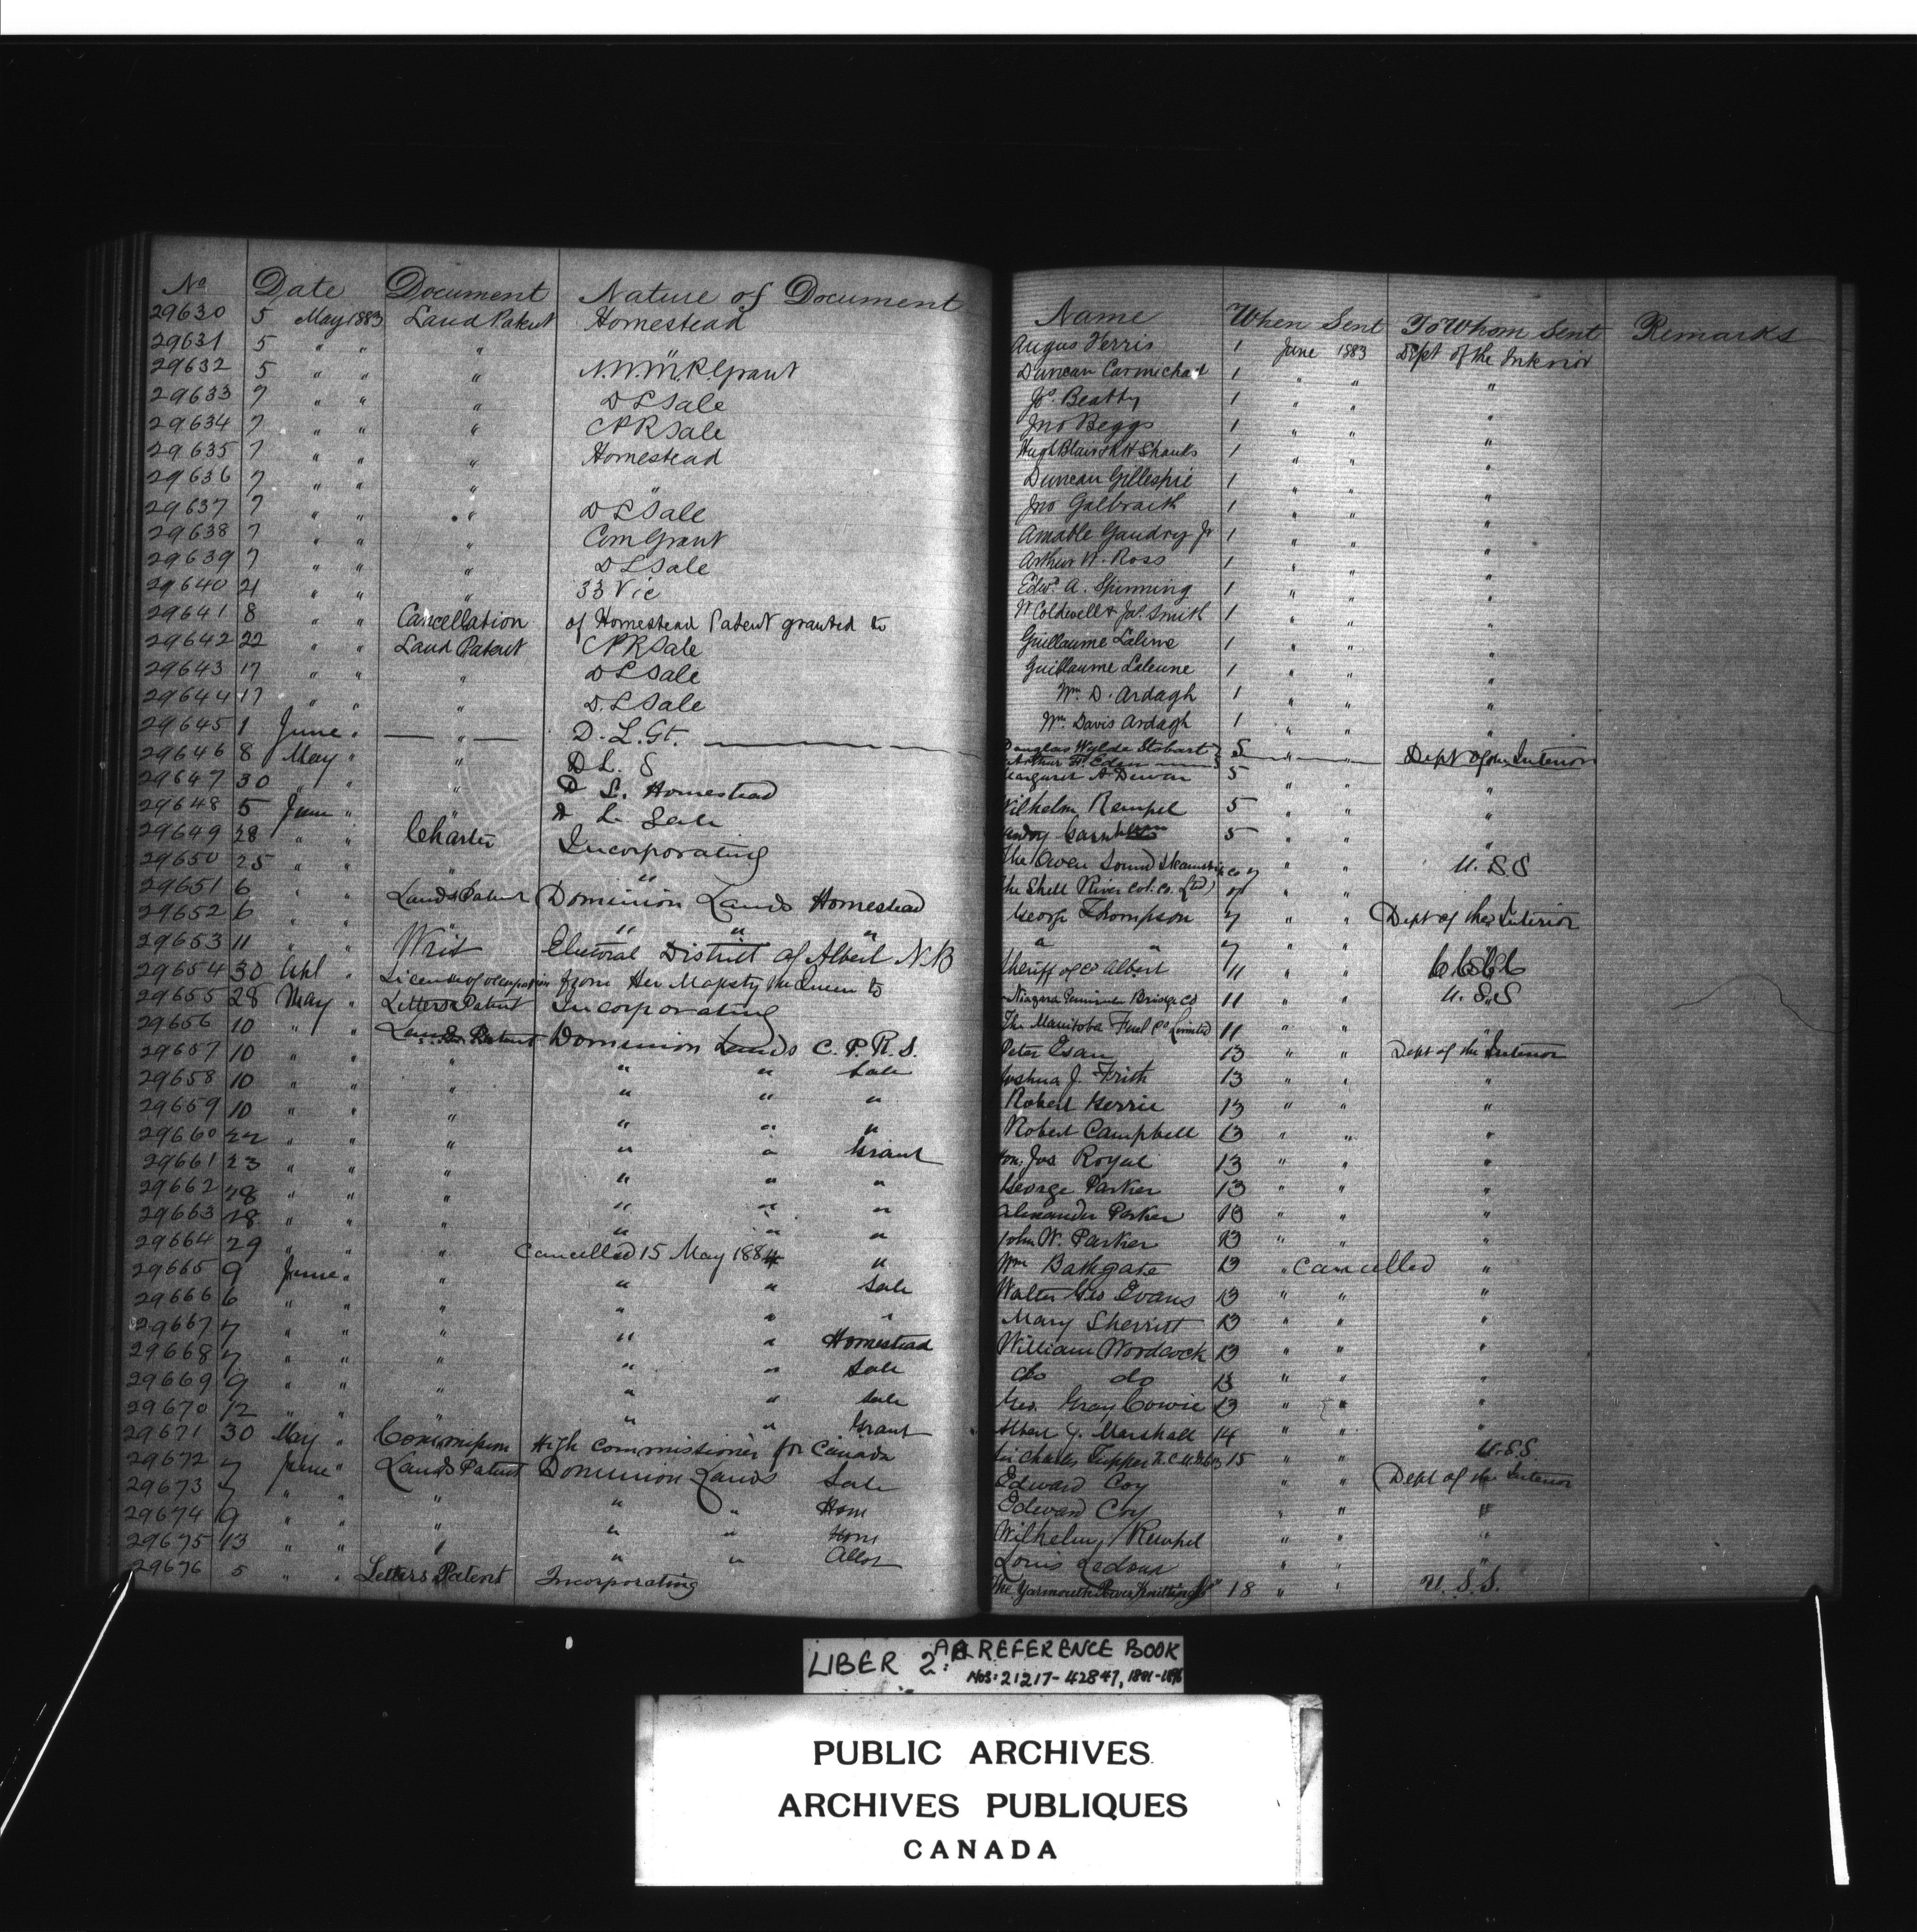 No Date Document Nature of Document
29630 5 May 1883 Land Patent Homestead
29631 5 " " " "
29632 5 " " " N.W.M.P. Grant
29633 7 " " " D L Sale
29634 7 " " " CPR Sale
29635 7 " " " Homestead
29636 7 " " " "
29637 7 " " " D L Sale
29638 7 " " " Com Grant
29639 7 " " " D L Sale
29640 21 " " " 33 Vic
29641 8 " " Cancellation of Homestead Patent granted to
29642 22 " " Land Patent CPR Sale
29643 17 " " " D L Sale
29644 17 " " " D. L Sale
29645 1 June " " D. L. Gt.
29646 8 May " " D L. S
29647 30 " " " D L. Homestead
29648 5 June " " D L. Sale
29649 28 " " Charter Incorporating
29650 25 " " " "
29651 6 " " Lands Patent Dominion Lands Homestead
29652 6 " " " " " "
29653 11 " " Writ Electoral District of Albert N.B
29654 30 Apl " License of occupation from Her Majesty the Queen to
29655 28 May " Letters Patent Incorporating
29656 10 " " Lands Patent Dominion Lands C. P. R. S.
29657 10 " " " " " Sale
29658 10 " " " " " "
29659 10 " " " " " "
29660 22 " " " " " Grant
29661 23 " " " " " "
29662 28 " " " " " "
29663 28 " " " " " "
29664 29 " " " Cancelled 15 May 1884 "
29665 9 June " " " " Sale
29666 6 " " " " " "
29667 7 " " " " " Homestead
29668 7 " " " " " Sale
29669 9 " " " " " Sale
29670 12 " " " " " Grant
29671 30 May " Commission High Commissioner for Canada
29672 7 June " Lands Patent Dominion Lands Sale
29673 7 " " " " " Hom
29674 9 " " " " " Hom
29675 13 " " " " " Allot
29676 5 " " Letters Patent Incorporating
Name When Sent To Whom Sent Remarks
Angus Ferris 1 June 1883 Dept of the Interior
Duncan Carmichael 1 " " "
Jos. Beatty 1 " "
Jno Beggs 1 " " "
Hugh Blair & Shanks 1 " " "
Duncan Gillespie 1 " " "
Jno Galbraith 1 " " "
Amable Gaudry Jr 1 " " "
Arthur W. Ross 1 " " "
Edwd. A. Spinning 1 " " "
W Coldwell & Jas. Smith 1 " " "
Guillaume Laleune 1 " " "
Guillaume Laleune 1 " " "
Wm D. Ardagh 1 " " "
Wm Davis Ardagh 1 " " "
Douglas Wylde Stobart
Arthur F. Eden 5 " " Dept of the Interior
Margaret A Dewar 5 " " "
Wilhelm Rempel 5 " " "
5 " " "
The Owen Sound Steamship Co 7 " " U. S. S
The Shell River Col. Co. (Ltd) 7 " "
George Thompson 7 " " Dept of the Interior
" " 7 " "
Sheriff of Co Albert 11 " "
Niagara Peninsula Bridge Co 11 " " U. S. S
The Manitoba Fuel Co Limited 11 " "
Peter Esau 13 " " Dept of the Interior
Joshua J. Frith 13 " " "
Robert Kerrie 13 " " "
Robert Campbell 13 " " "
Hon. Jos Royal 13 " " "
George Parker 13 " " "
Alexander Parker 13 " " "
John W. Parker 13 " " "
Wm Bathgate 13 " Cancelled "
Walter Geo Evans 13 " " "
Mary Sherritt 13 " " "
William Woodcock 13 " " "
do do 13 " " "
Geo. Gray Cowie 13 " " "
Albert J. Marshall 14 " " "
Sir Charles Tupper K.C.M.G. 15 " " U.S.S.
Edward Coy " " Dept of the Interior
Edward Coy " " "
Wilhelm Rempel " " "
Louis Ledoux " " "
The Yarmouth Power Knitting Co 18 " " U. S. S.
LIBER 2: AB REFERENCE BOOK
NOS: 21217-42847, 1881-1896
PUBLIC ARCHIVES
ARCHIVES PUBLIQUES
CANADA